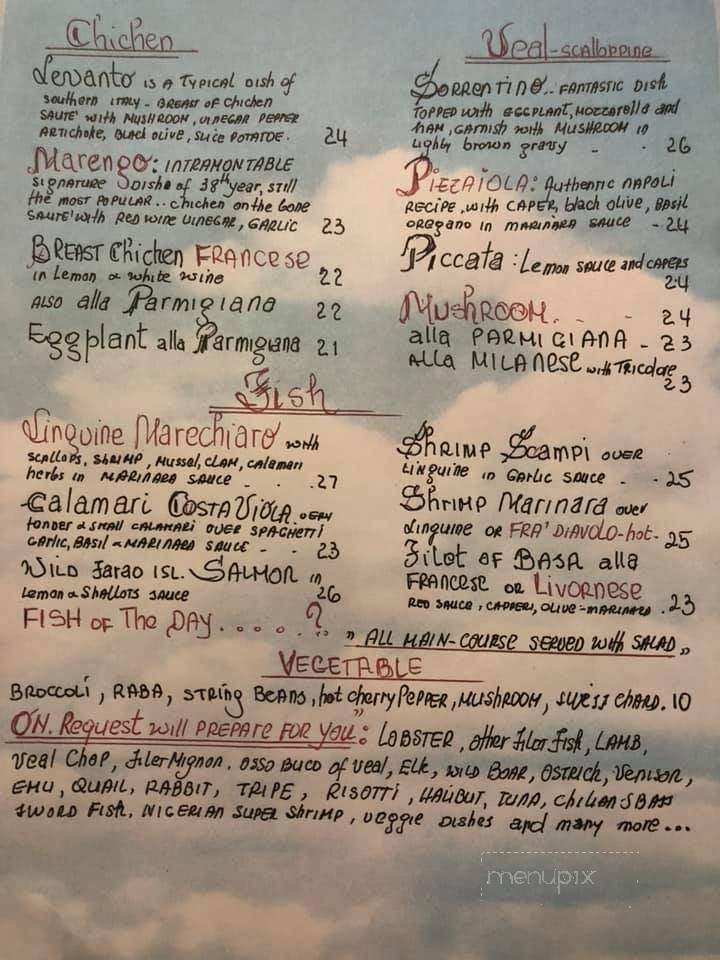 Chichen
Levanto IS A TYPICAL DISH of
southern ITALY - BREAST of chichen
SAUTE' with MUSHROOM, VINEGAR PEPPER
ARTICHOKE, BLACK OLIVE, SLICE POTATOE. 24
Marengo: INTRAMONTABLE
SIGNATURE DISHE of 38th year, still
the most POPULAR.. chichen on the bone
SAUTE' with RED WINE VINEGAR, GARLIC 23
BREAST Chichen FRANCESE
in Lemon & white wine 22
ALSO alla Parmigiana 22
Eggplant alla Parmigiana 21
Veal-SCALLOPPINE
SORRENTINO.. FANTASTIC DISH
TOPPED with EGGPLANT, MOZZARELLA and
HAM, GARNISH with MUSHROOM in
Lighly brown gravy - - 26
PIEZAIOLA: Authentic NAPOLI
RECIPE, with CAPER, black olive, BASIL
oregano in MARINARA SAUCE - 24
Piccata: Lemon SAUCE and CAPERS
24
MUSHROOM. - - 24
alla PARMIGIANA - 23
ALLA MILANESE with TRICOLORE
23
Fish
Linguine Marechiaro with
SCALLOPS, SHRIMP, Mussel, CLAM, calamari
herbs in MARINARA SAUCE - . . 27
Calamari COSTA VIOLA. VERY
TONDER & SMALL CALAMARI OVER SPAGHETTI
GARLIC, BASIL & MARINARA SAUCE - - 23
WILD Farao ISL. SALMON in
Lemon & Shallots SAUCE 26
FISH OF The DAY . . . . . ? . .
SHRIMP Scampi OVER
Linguine in GARLIC SAUCE - - 25
Shrimp Marinara over
Linguine OR FRA' DIAVOLO-hot- 25
Filot OF BASA alla
FRANCESE OR LIVORNESE
RED SAUCE, CAPPER, OLIVE-MARINARA . 23
" ALL MAIN-COURSE SERVED with SALAD "
VEGETABLE
BROCCOLI, RABA, STRING BEANS, hot cherry PEPPER, MUSHROOM, SWISS CHARD. 10
O'N. Request will PREPARE FOR YOU": LOBSTER, Other Filot Fish, LAMB,
Veal CHOP, Filer Mignon. OSSO BUCO of Veal, ELK, WILD BOAR, OSTRICH, VENISON,
EMU, QUAIL, RABBIT, TRIPE, RISOTTI, HALIBUT, TUNA, Chilian S BASS
SWORD FISH, NIGERIAN SUPER Shrimp, veggie DISHES and many more...
menupix